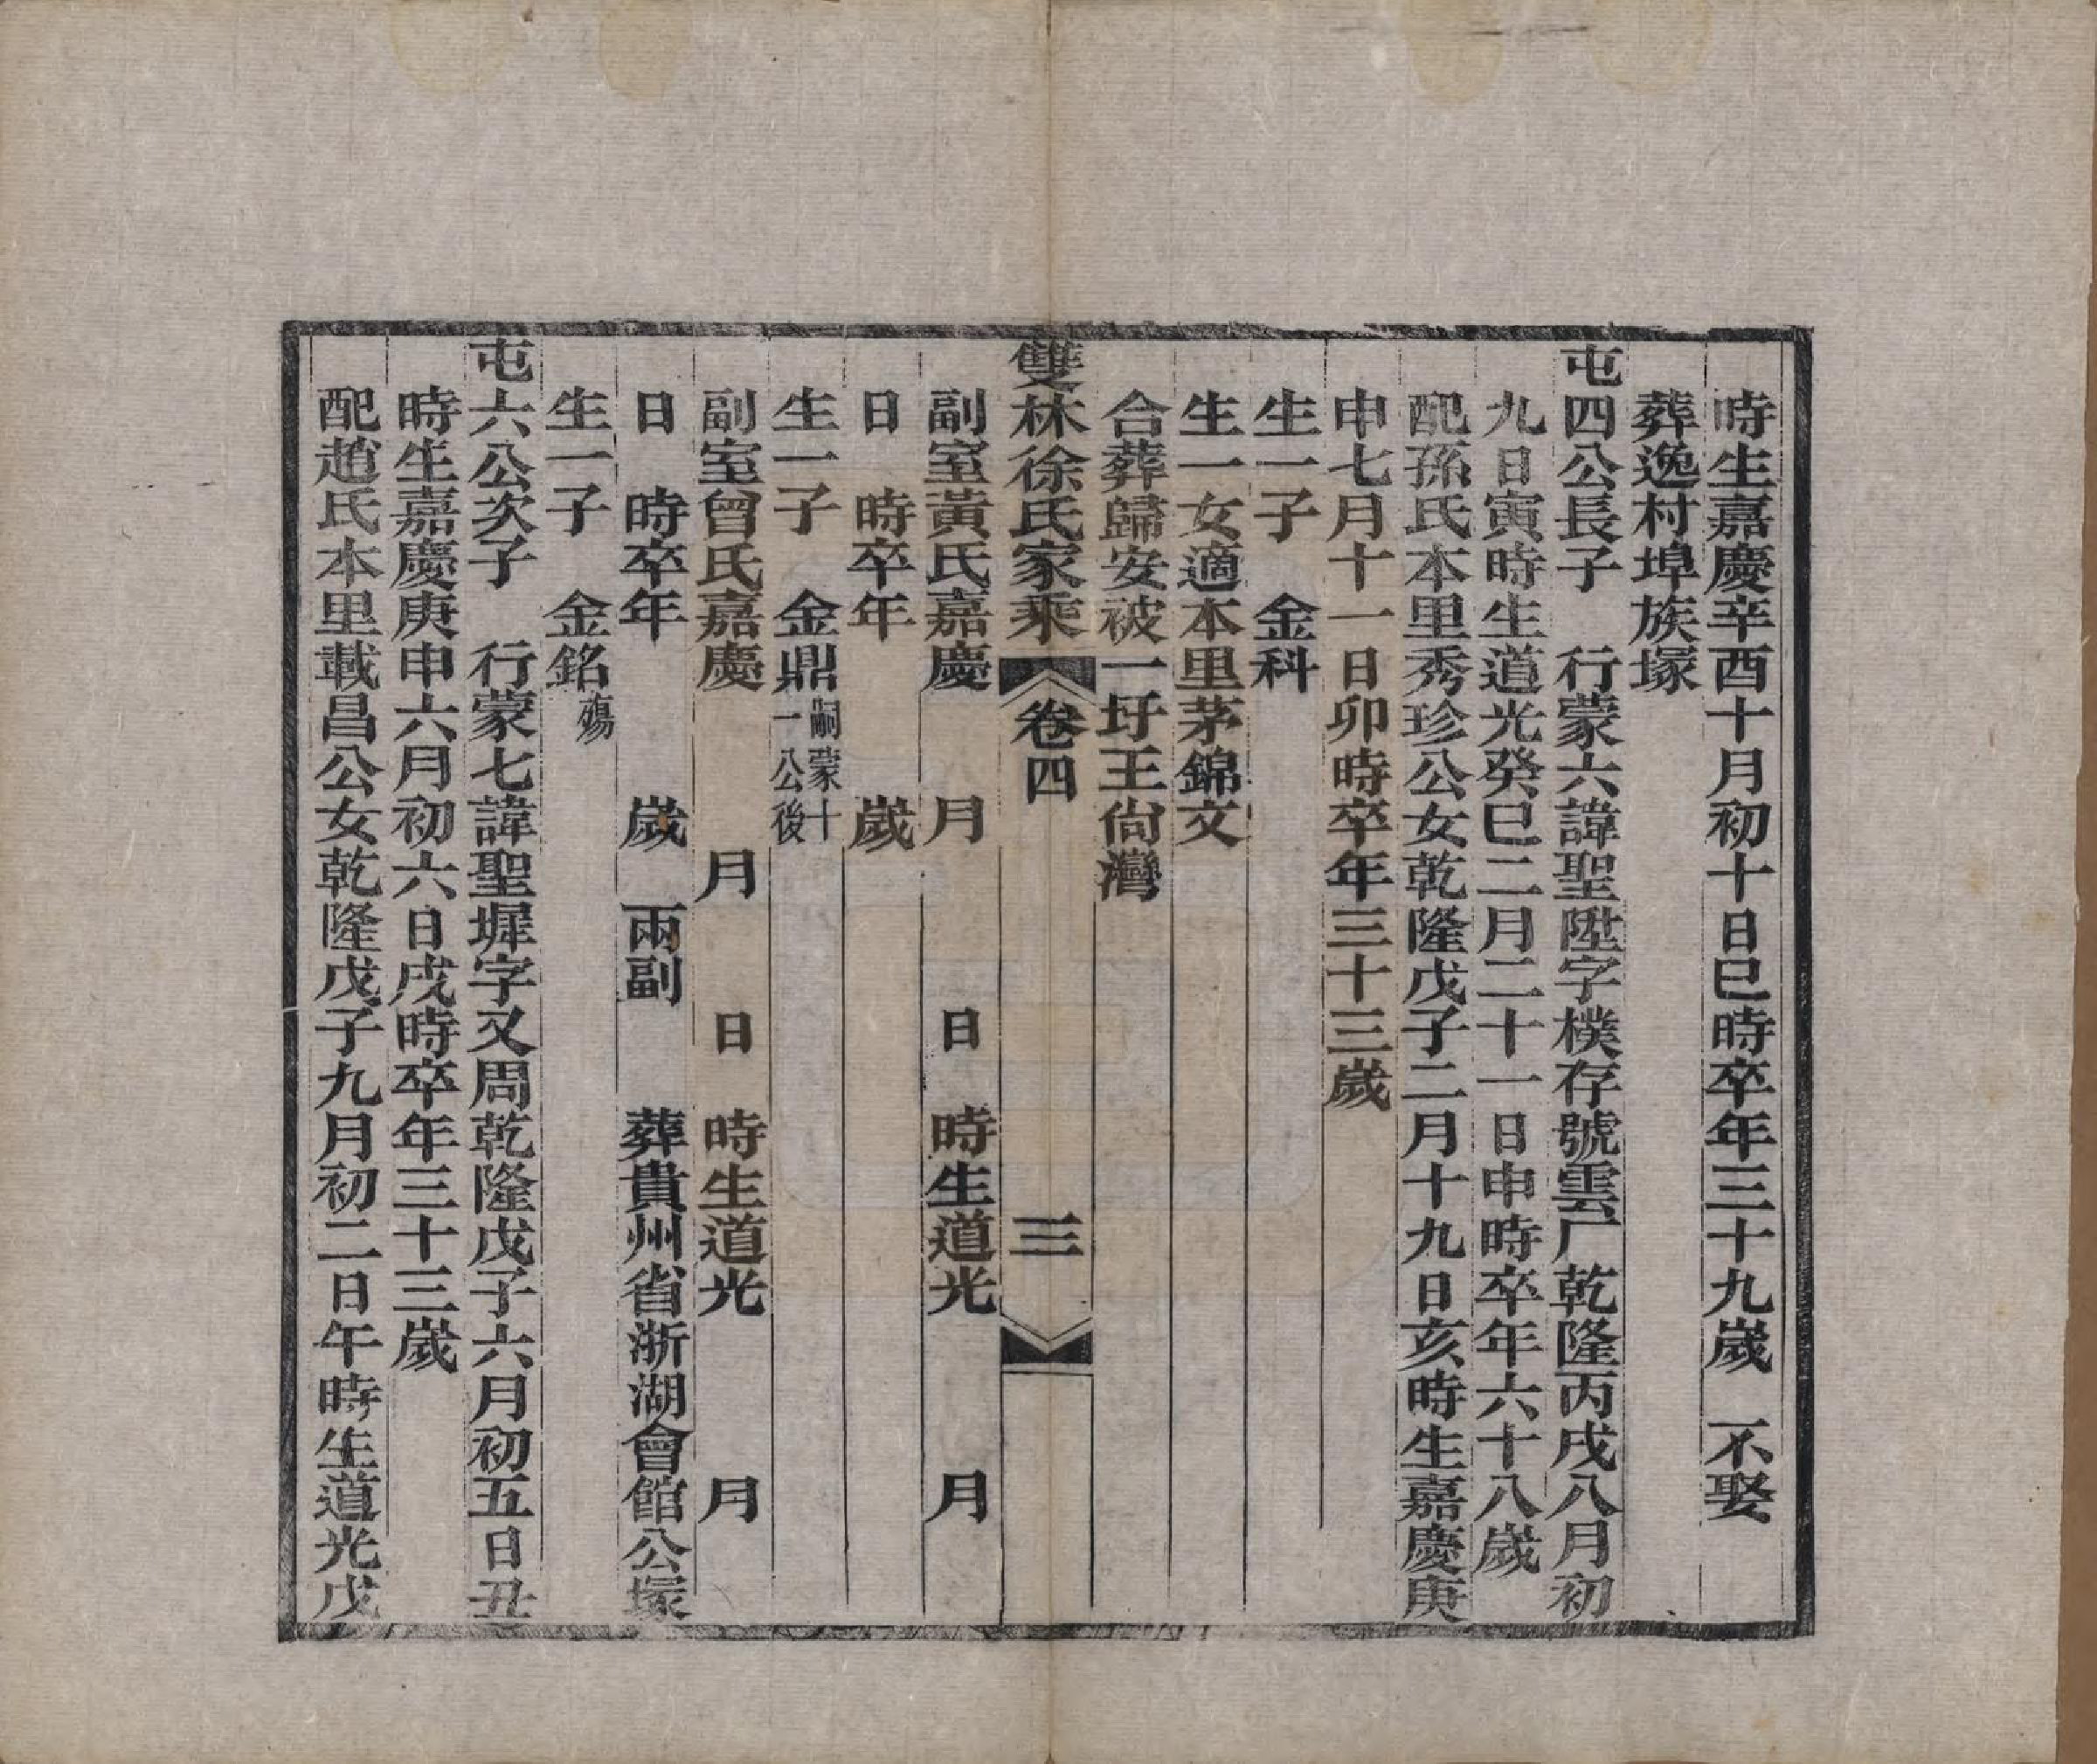 時生嘉慶辛酉十月初十日巳時卒年三十九歲　不娶
葬逸村埠族塚
屯四公長子　行蒙六諱聖陞字樸存號雲厂乾隆丙戌八月初
九日寅時生道光癸巳二月二十一日申時卒年六十八歲
配孫氏本里秀珍公女乾隆戊子二月十九日亥時生嘉慶庚
申七月十一日卯時卒年三十三歲
生一子　金科
生一女適本里茅錦文
合葬歸安被一圩王尙灣
雙林徐氏家乘　卷四　三
副室黃氏嘉慶　　月　　　日　時生道光　　　月
日　時卒年　　　歲
生一子　金鼎嗣蒙十一公後
副室曾氏嘉慶　　　月　　日　時生道光　　　月
日　時卒年　　　歲　兩副　　葬貴州省浙湖會館公塚
生一子　金銘殤
屯六公次子　行蒙七諱聖墀字又周乾隆戊子六月初五日丑
時生嘉慶庚申六月初六日戌時卒年三十三歲
配趙氏本里載昌公女乾隆戊子九月初二日午時生道光戊